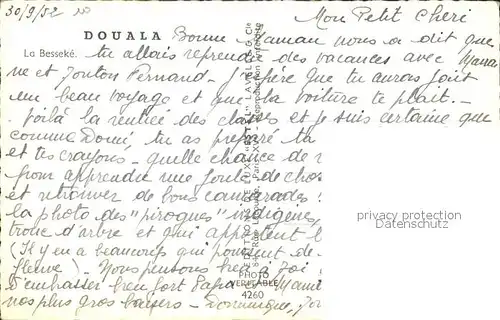 30/9/52
Mon Petit Chéri
DOUALA
La Besseké.
Bonne Maman nous a dit que
tu allais reprendre des vacances avec Mama
ne et Tonton Fernand - J'espère que tu auras fait
un beau voyage et que la voiture te plait. -
Voilà la rentrée des classes et je suis certaine que
comme Domi, tu as préparé ta
et tes crayons - quelle chance de
pour apprendre une foule de cho
et retrouver de bons camarades
la photo des "pirogues" indigènes
tronc d'arbre et qui appartient
(Il y en a beaucoup qui de
fleuve) - Nous pensons bien à Toi
d'embrasser bien fort Papa Mami
nos plus gros baisers - Dominique,
EDITIONS DE LUXE "ESTEL" LAVELLE & Cie
Paris XIV - Reproduction interdite
PHOTO
VERITABLE
4260
privacy protection
Datenschutz